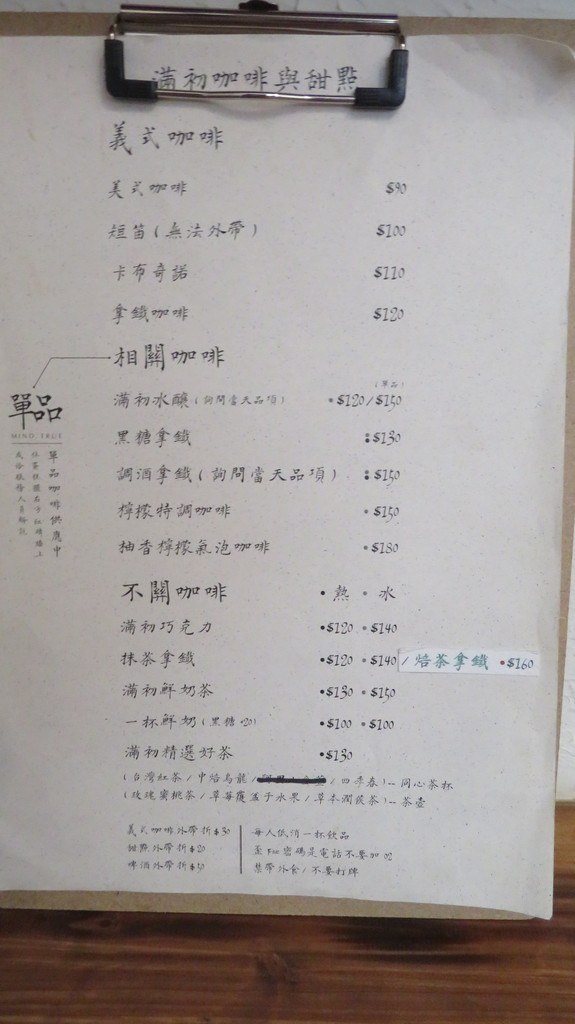 滿初咖啡與甜點
義式咖啡
美式咖啡 $90
短笛(無法外帶) $100
卡布奇諾 $110
拿鐵咖啡 $120
相關咖啡
(單品)
滿初冰釀(詢問當天品項) •$120/$150
黑糖拿鐵 •$130
調酒拿鐵(詢問當天品項) •$150
檸檬特調咖啡 •$150
柚香檸檬氣泡咖啡 •$180
單品
MIND TRUE
單品咖啡供應中
不關咖啡 •熱 •冰
滿初巧克力 •$120 •$140
抹茶拿鐵 •$120 •$140 / 焙茶拿鐵 •$160
滿初鮮奶茶 •$130 •$150
一杯鮮奶(黑糖+20) •$100 •$100
滿初精選好茶 •$130
(台灣紅茶/中焙烏龍/ /四季春)--同心茶杯
(玫瑰蜜桃茶/草莓覆盆子水果/草本潤喉茶)--茶壺
義式咖啡外帶折$30
甜點外帶折$20
啤酒外帶折$50
每人低消一杯飲品
密碼是電話不要加02
禁帶外食/不要打牌